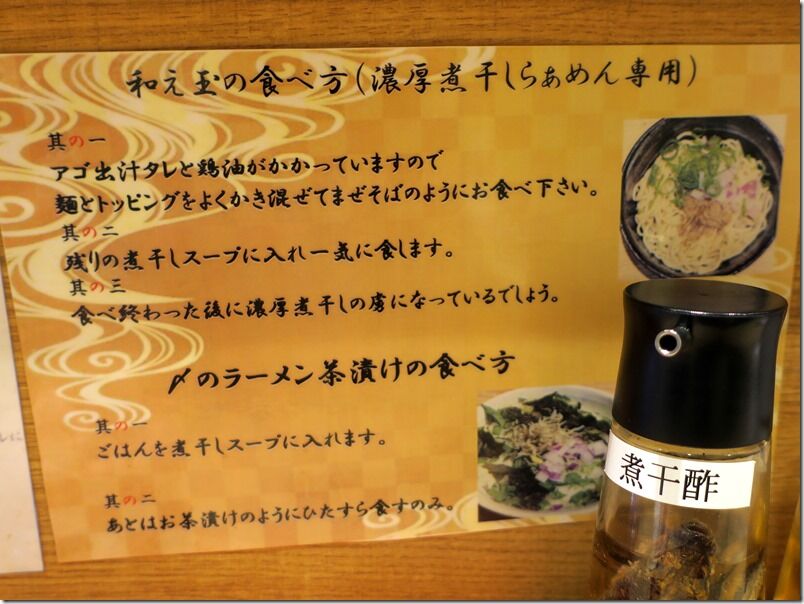 和え玉の食べ方(濃厚煮干しらぁめん専用)
其の一
アゴ出汁タレと鶏油がかかっていますので
麺とトッピングをよくかき混ぜてまぜそばのようにお食べ下さい。
其の二
残りの煮干しスープに入れ一気に食します。
其の三
食べ終わった後に濃厚煮干しの虜になっているでしょう。
〆のラーメン茶漬けの食べ方
其の一
ごはんを煮干しスープに入れます。
其の二
あとはお茶漬けのようにひたすら食すのみ。
煮干酢